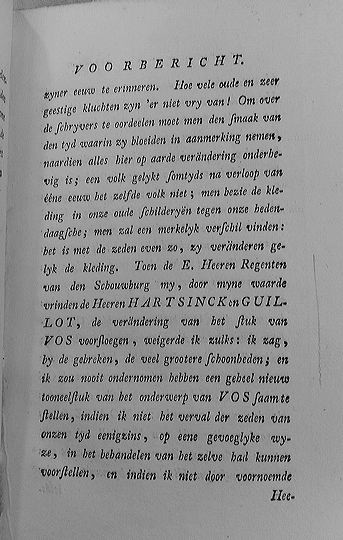 VOORBERICHT.
zyner eeuw te erinneren. Hoe vele oude en zeer
geestige kluchten zyn 'er niet vry van! Om over
de ſchryvers te oordeelen moet men den ſmaak van
den tyd waarin zy bloeiden in aanmerking nemen,
naardien alles hier op aarde verändering onderhe-
vig is; een volk gelykt ſomtyds na verloop van
ééne eeuw het zelfde volk niet; men bezie de kle-
ding in onze oude ſchilderyën tegen onze heden-
daagſche; men zal een merkelyk verſchil vinden:
het is met de zeden even zo, zy veränderen ge-
lyk de kleding. Toen de E. Heeren Regenten
van den Schouwburg my, door myne waarde
vrinden de Heeren HARTSINCK en GUIL-
LOT, de verändering van het ſtuk van
VOS voorſloegen, weigerde ik zulks: ik zag,
by de gebreken, de veel grootere ſchoonheden; en
ik zou nooit ondernomen hebben een geheel nieuw
tooneelſtuk van het onderwerp van VOS ſaamte
ſtellen, indien ik niet het verval der zeden van
onzen tyd eenigzins, op eene gevoeglyke wy-
ze, in het behandelen van het zelve had kunnen
voorſtellen, en indien ik niet door voornoemde
Hee-